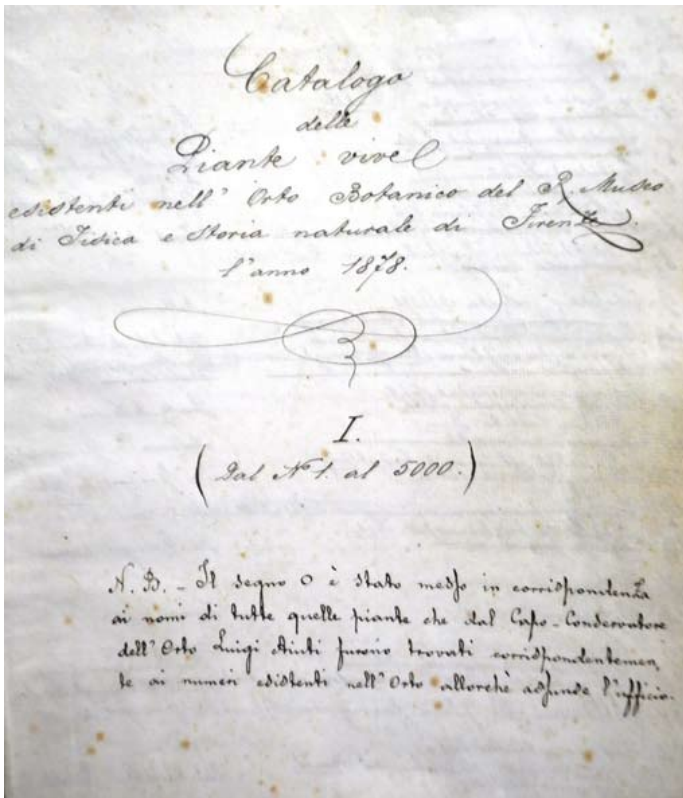 Catalogo
delle
Piante vive
esistenti nell' Orto Botanico del R. Museo
di Fisica e Storia naturale di Firenze.
l'anno 1878.
I.
(Dal N° 1. al 5000.)
N. B. - Il segno O è stato messo in corrispondenza
ai nomi di tutte quelle piante che dal Capo-Conservatore
dell' Orto Luigi Aiuti furono trovati corrispondentemen,
te ai numeri esistenti nell' Orto allorchè assunse l'ufficio.